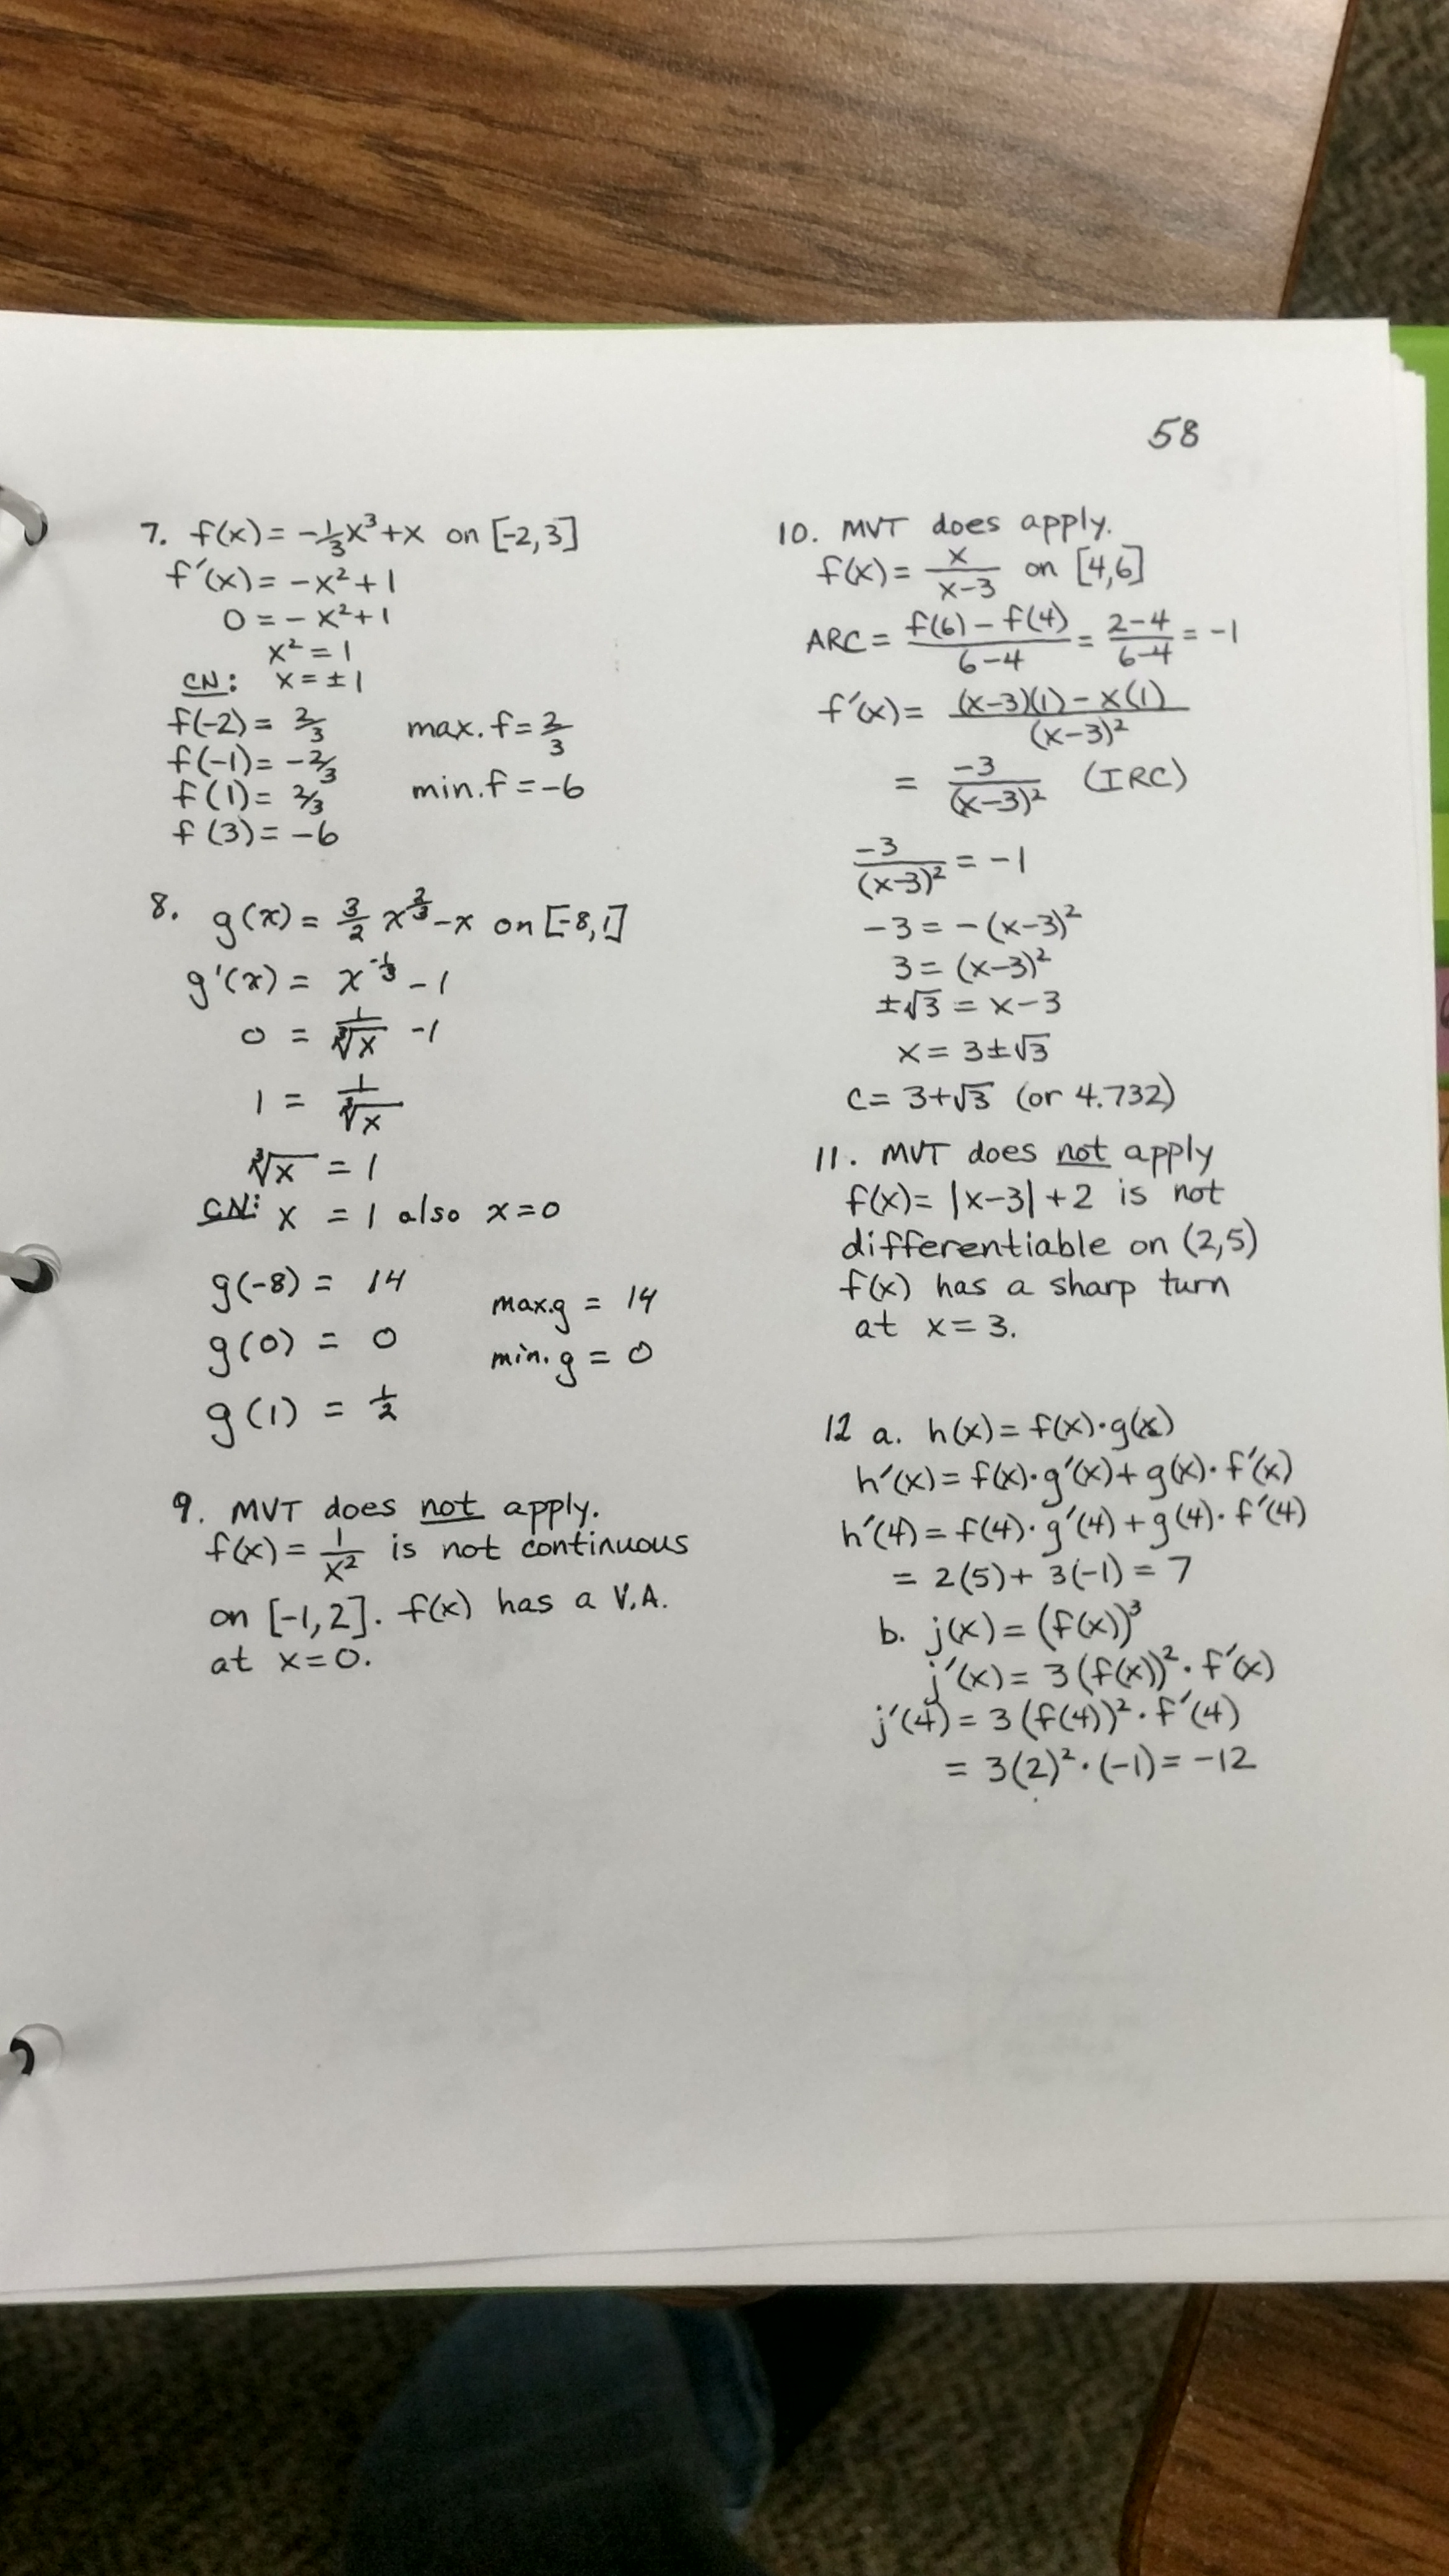 58
7. f(x) = -1/3 x³ + x on [-2, 3]
f'(x) = -x² + 1
0 = -x² + 1
x² = 1
CN: x = ±1
f(-2) = 2/3
f(-1) = -2/3
f(1) = 2/3
f(3) = -6
max. f = 2/3
min. f = -6
8. g(x) = 3/2 x^(2/3) - x on [-8, 1]
g'(x) = x^(-1/3) - 1
0 = 1/∛x - 1
1 = 1/∛x
∛x = 1
CN: x = 1 also x = 0
g(-8) = 14
g(0) = 0
g(1) = 1/2
max. g = 14
min. g = 0
9. MVT does not apply.
f(x) = 1/x² is not continuous
on [-1, 2]. f(x) has a V.A.
at x = 0.
10. MVT does apply.
f(x) = x/(x-3) on [4,6]
ARC = (f(6) - f(4))/(6-4) = (2-4)/(6-4) = -1
f'(x) = ((x-3)(1) - x(1))/(x-3)²
= -3/(x-3)² (IRC)
-3/(x-3)² = -1
-3 = -(x-3)²
3 = (x-3)²
±√3 = x-3
x = 3±√3
c = 3+√3 (or 4.732)
11. MVT does not apply
f(x) = |x-3| + 2 is not
differentiable on (2,5)
f(x) has a sharp turn
at x = 3.
12 a. h(x) = f(x)·g(x)
h'(x) = f(x)·g'(x) + g(x)·f'(x)
h'(4) = f(4)·g'(4) + g(4)·f'(4)
= 2(5) + 3(-1) = 7
b. j(x) = (f(x))³
j'(x) = 3(f(x))²·f'(x)
j'(4) = 3(f(4))²·f'(4)
= 3(2)²·(-1) = -12